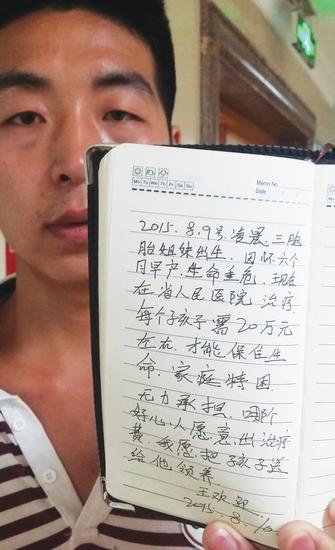 Memo No.
Date
Mo Tu We Th Fr Sa Su
2015.8.9号凌晨.三胞
胎姐妹出生.因怀六个
月早产.生命垂危.现在
在省人民医院治疗.
每个孩子需20万元
左右.才能保住生
命.家庭特困.
无力承担.哪个
好心人愿意出治疗
费.我愿把孩子送
给他领养.
王欢
2015.8.10